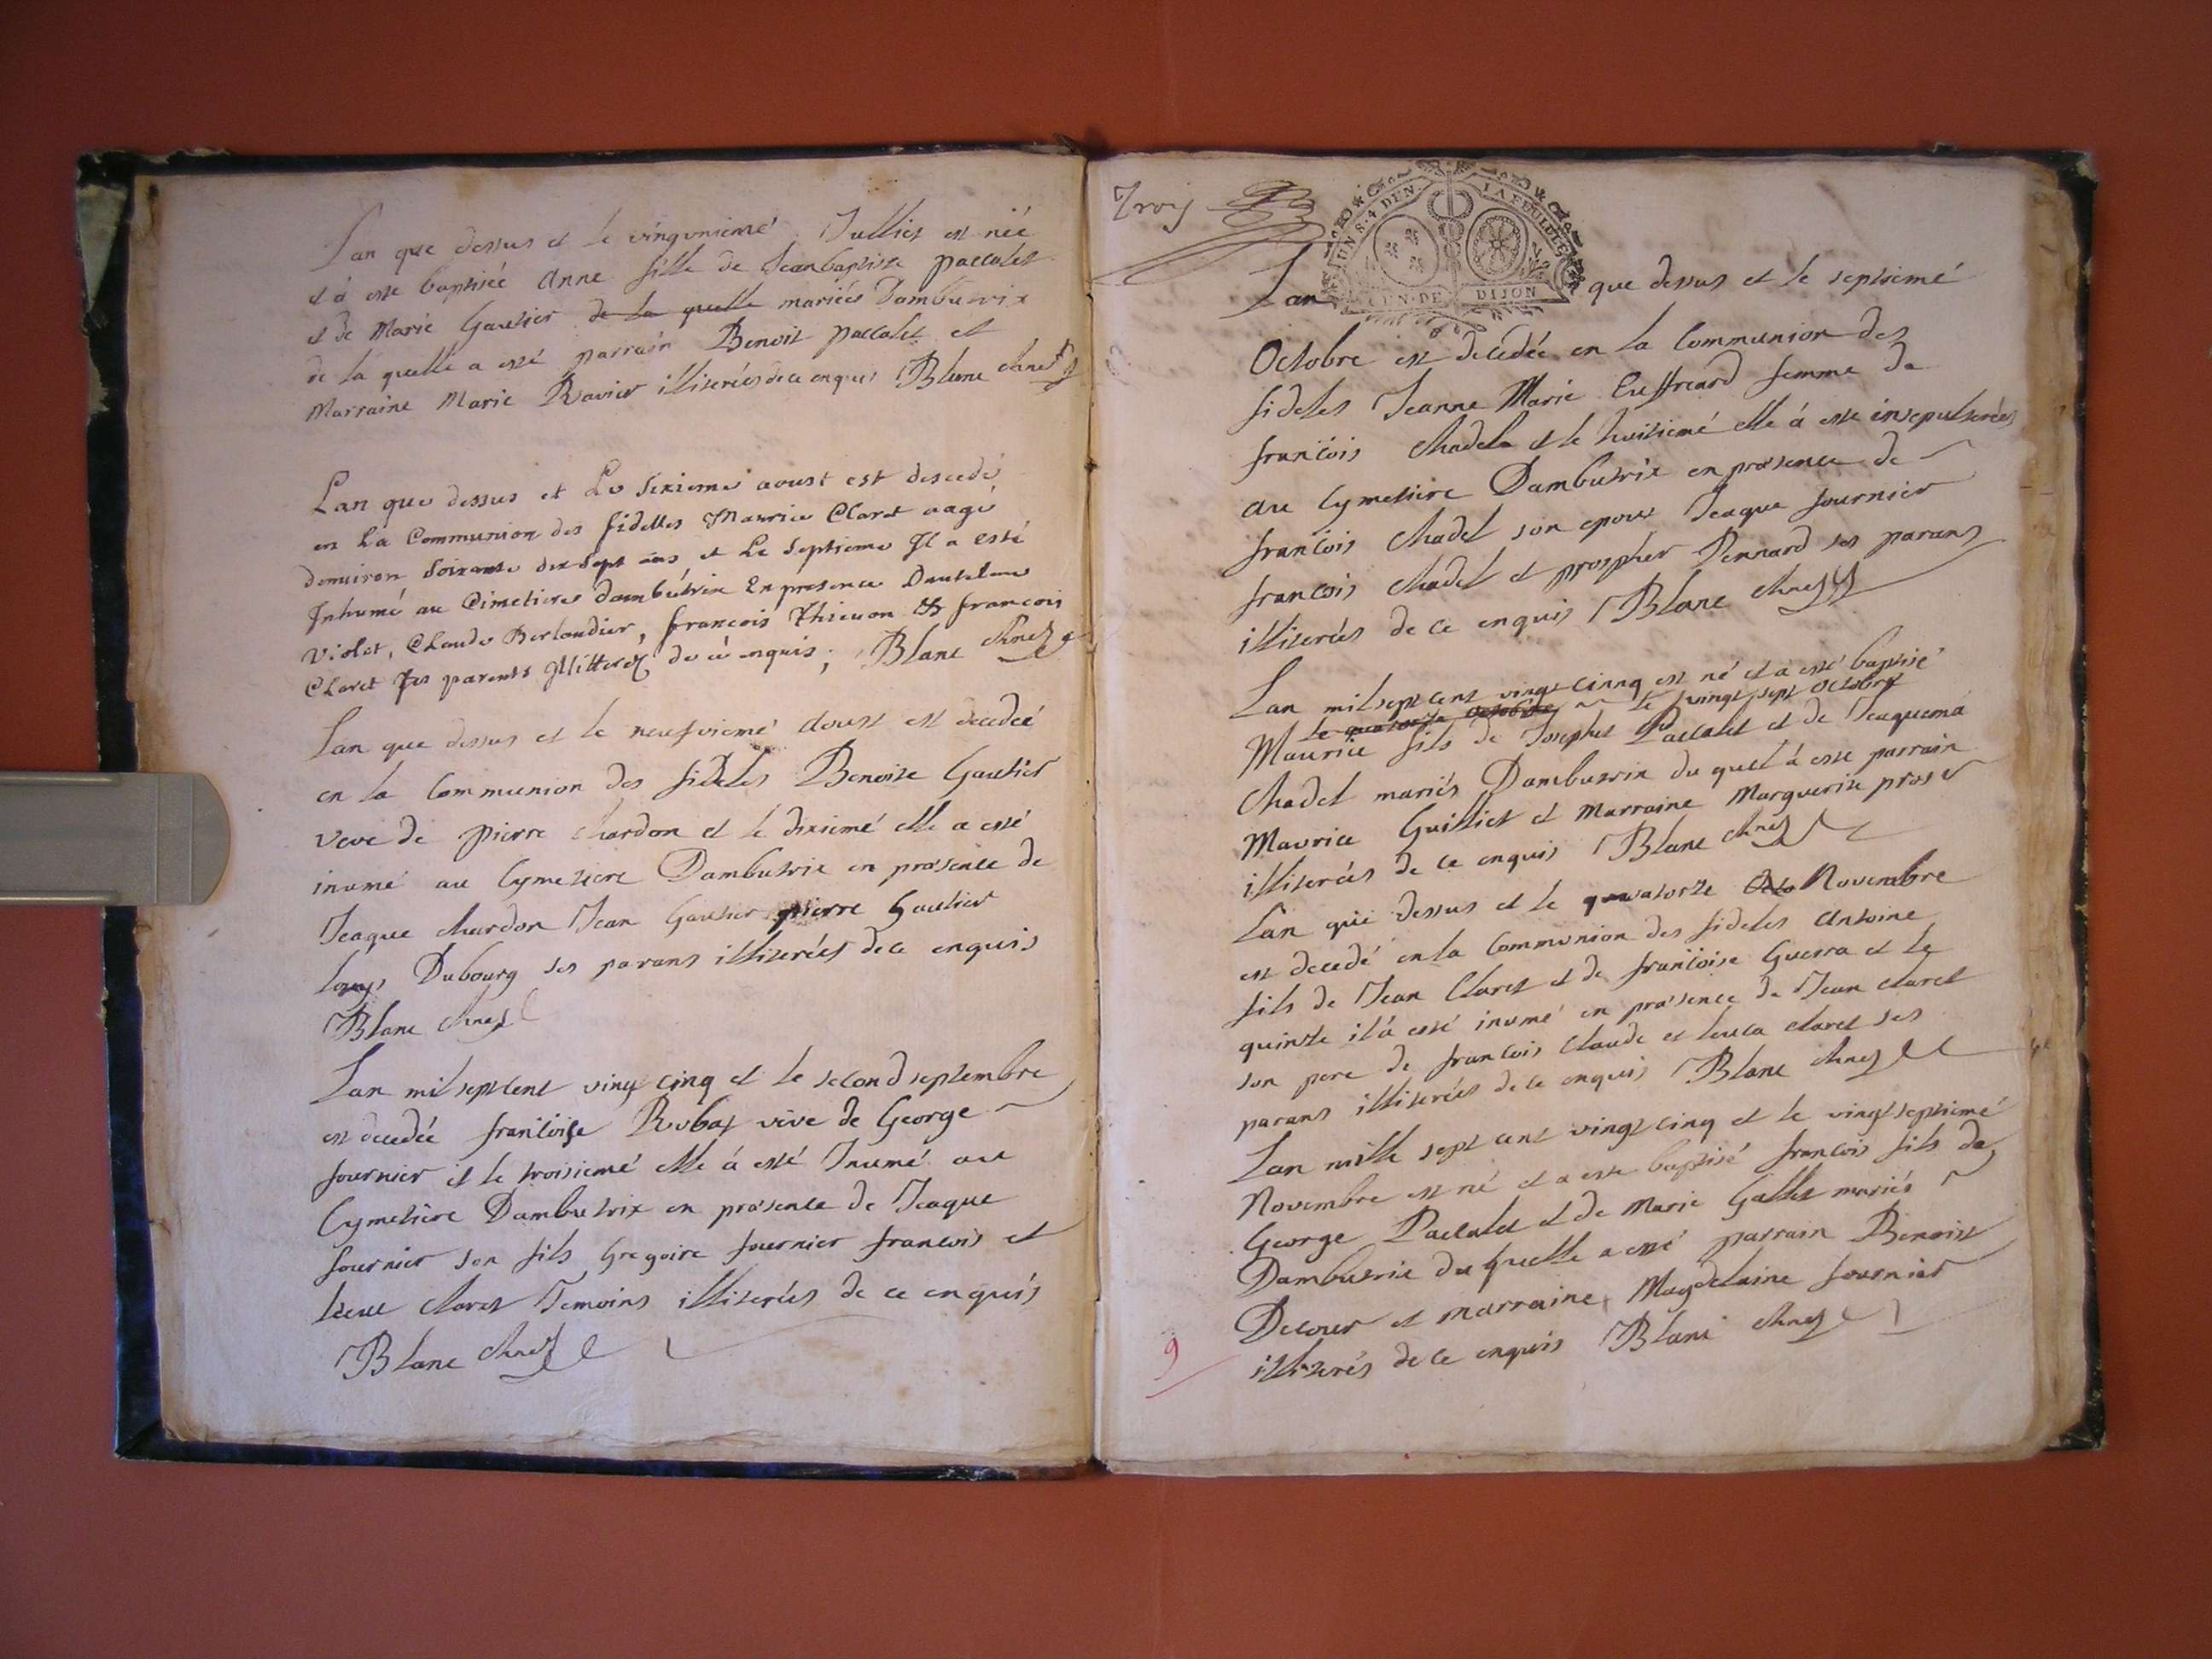 Lan que dessus et le vingunieme Julliet est née
et à este baptisée Anne fille de Jeanbaptiste paccalet
et de Marie Gautier de la quelle mariés Dambutrix
de la quelle a esté parrain Benoit paccalet et
Marraine Marie Ravier illiterées de ce enquis Blanc
Lan que dessus et Le Sixieme aoust est descedé
en La Communion des fidelles Maurice Claret aagé
denuiron Soixante dix Sept ans et Le Septieme Il a esté
Inhumé au Cimetiere dambutrix En presence
Violet, Claude Berloudier, francois Thieuon & francois
Claret Ses parents Jllitterez de cè enquis; Blanc
Lan que dessus et le neufvieme Aoust est decedeé
en la Communion des fideles Benoite Gautier
veve de pierre Chardon et le dixiemé elle a esté
inumé au Cymetiere Dambutrix en presence de
Jeaque Chardon Jean Gautier pierre Gautier
louys Dubourg ses parans illiterées de ce enquis
Blanc
Lan mil sept Cent ving cinq et le second septembre
est decedée francoise Rubat vêve de George
fournier et le troisiemé elle à esté Inumé au
Cymetiere Dambutrix en presence de Jeaque
fournier son fils Gregoire fournier francois et
Claret Temoins illiterées de ce enquis
Blanc
Trois
UN S. 4 DEN. LA FEUILLE
GEN. DE DIJON
Lan que dessus et le septiemé
Octobre est decedée en la Communion des
fideles Jeanne Marie femme de
francois Chadel et le huitiemé elle à esté insepulterées
au Cymetiere Dambutrix en presence de
francois Chadel son epoux Jeaque fournier
francois Chadel et prospher Bernard ses parans
illiterées de ce enquis Blanc
Lan mil sept cent vingt cinq est né et a esté baptisé
le quatorze octobre le vingt sept Octobre
Maurice fils de Josephet Paccalet et de Jeaquema
Chadel mariés Dambutrix du quel à este parrain
Maurice Guilliet et Marraine Marguerite prost
illiterées de ce enquis Blanc
Lan que dessus et le quatorze Octo Novembre
est decedé en la Communion des fideles Antoine
fils de Jean Claret et de francoise Guerra et le
quinze il à esté inumé en presence de Jean claret
son pere de francois Claude et claret ses
parans illiterées de ce enquis Blanc
Lan mille sept cent vingt cinq et le vingtseptiemé
Novembre est né et a este baptisé francois fils de
George Paccalet et de Marie Gallet mariés
Dambutrix du quelle a esté parrain Benoist
Decour et marraine Magdelaine fournier
illiterés de ce enquis Blanc
9